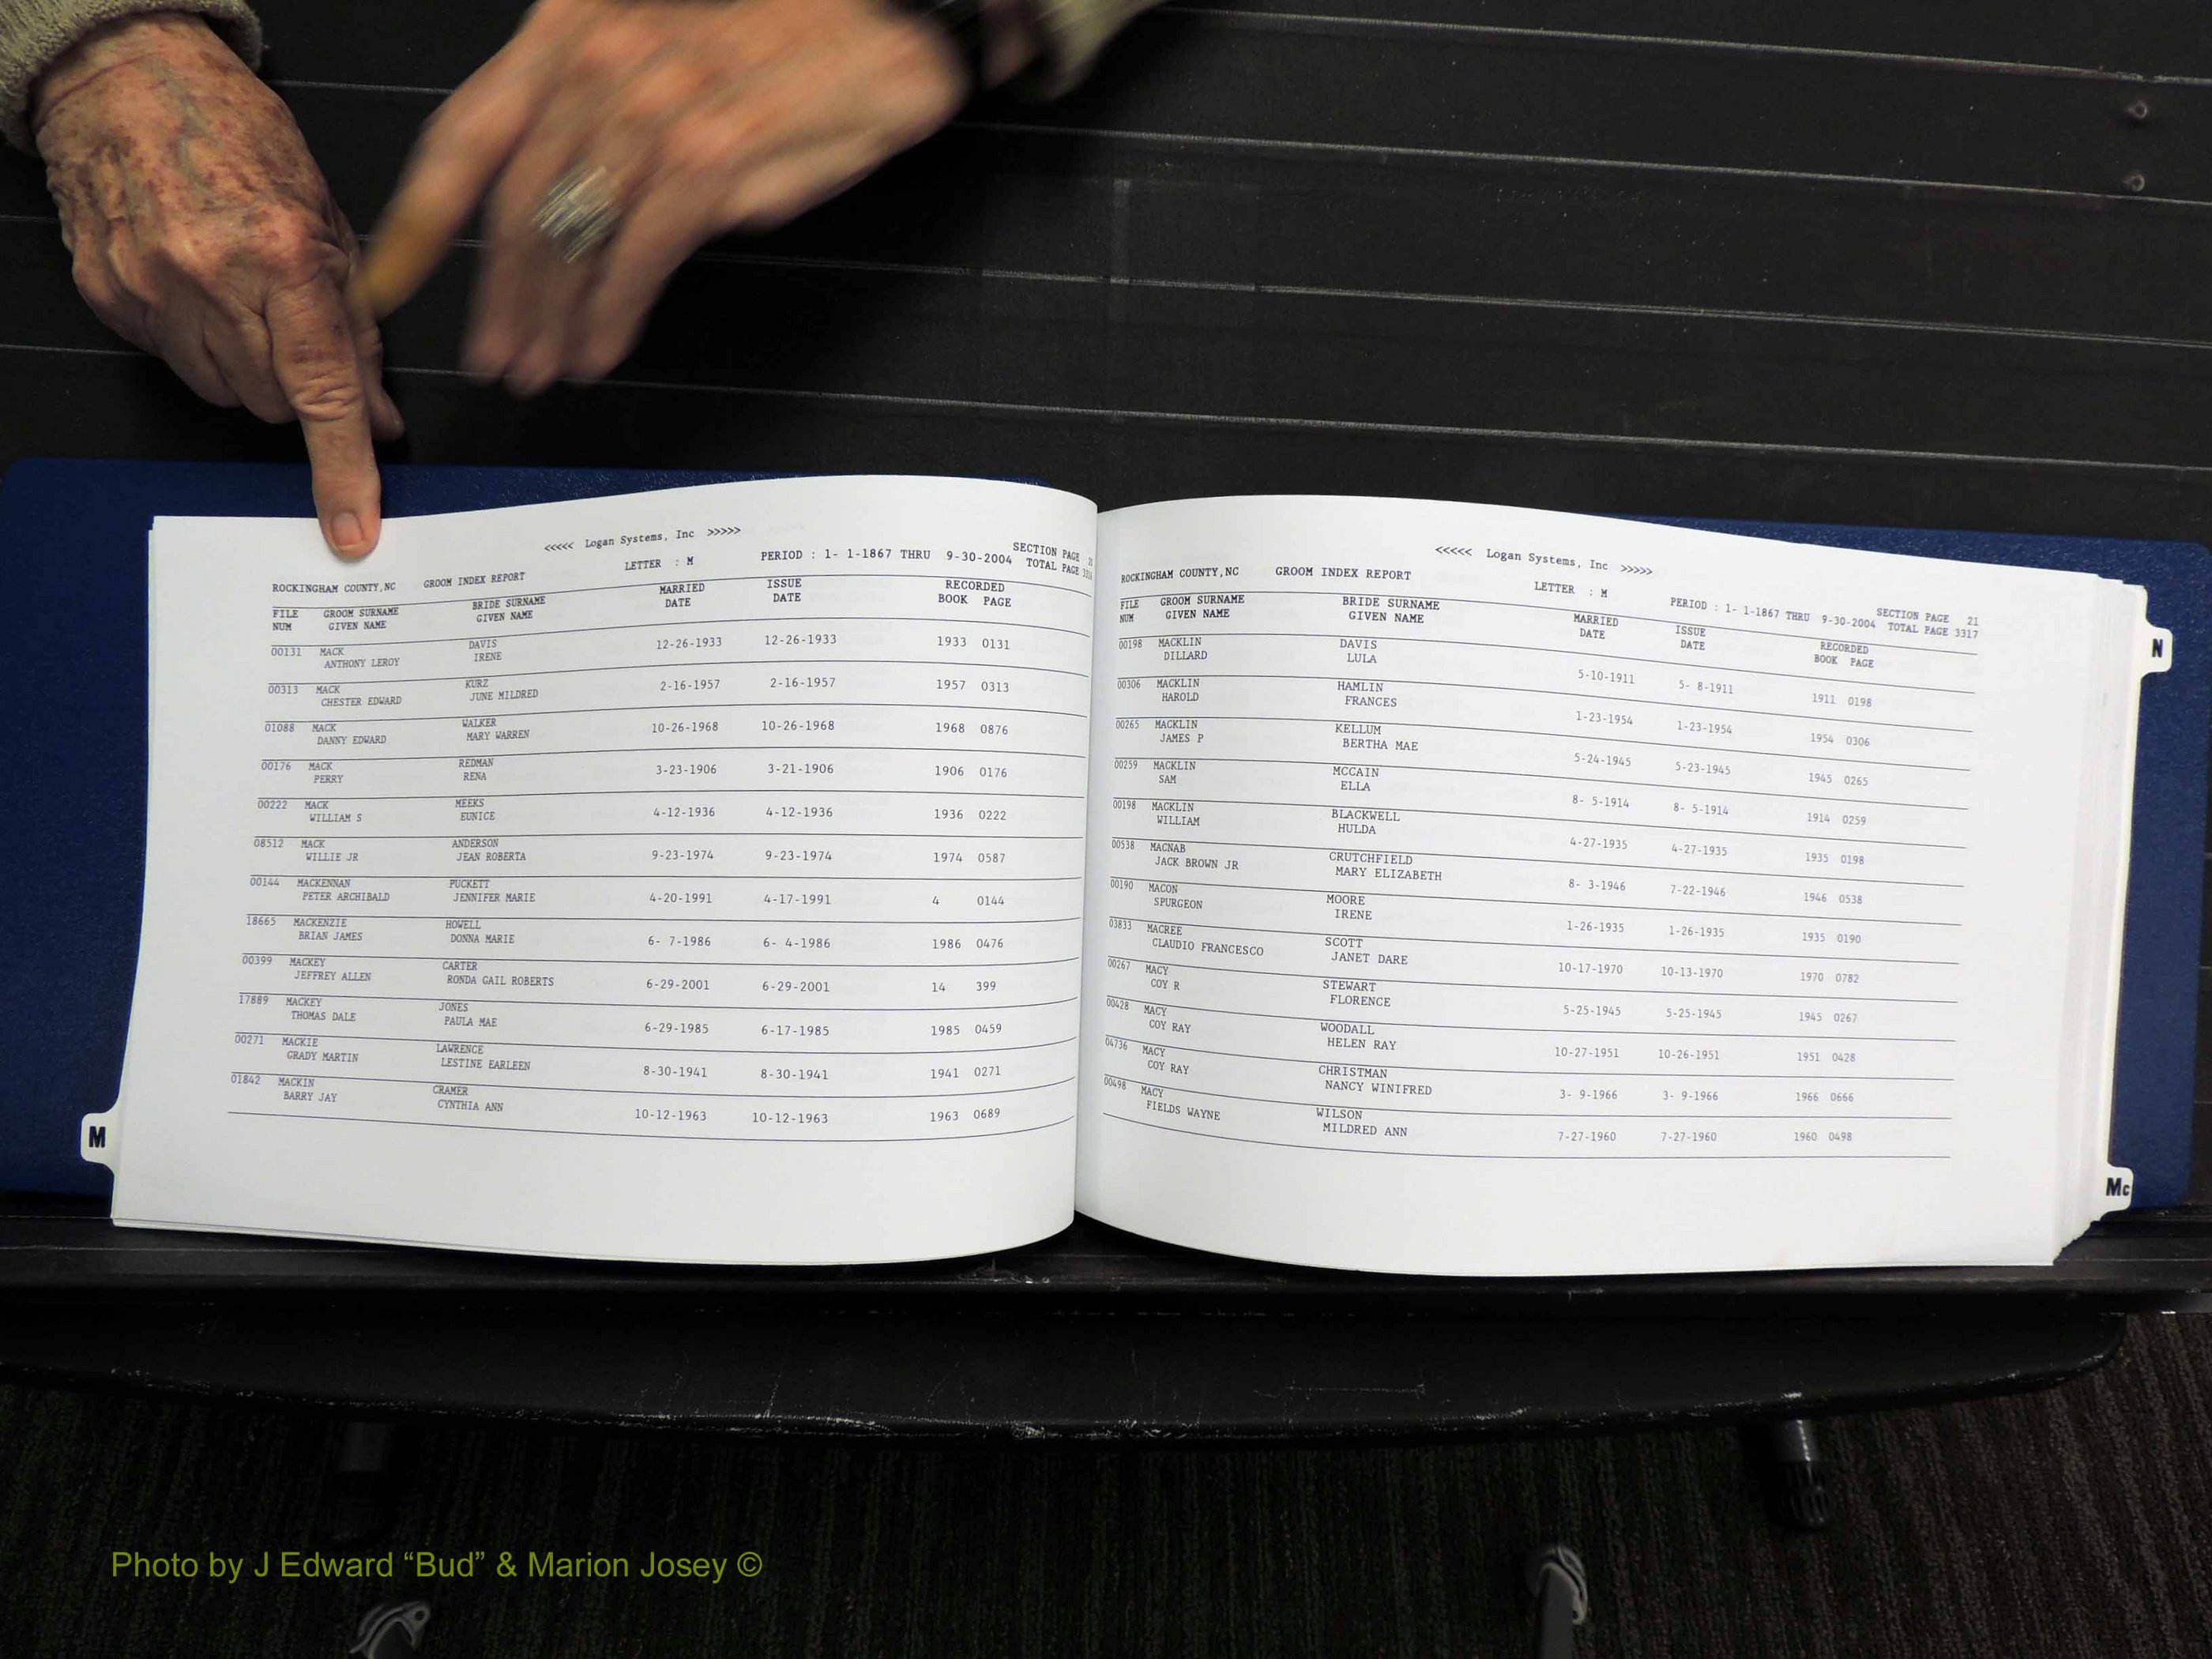 <<<<< Logan Systems, Inc >>>>>
ROCKINGHAM COUNTY,NC GROOM INDEX REPORT LETTER : M PERIOD : 1- 1-1867 THRU 9-30-2004 SECTION PAGE
TOTAL PAGE
FILE GROOM SURNAME BRIDE SURNAME MARRIED ISSUE RECORDED
NUM GIVEN NAME GIVEN NAME DATE DATE BOOK PAGE
00131 MACK DAVIS 12-26-1933 12-26-1933 1933 0131
ANTHONY LEROY IRENE
00313 MACK KURZ 2-16-1957 2-16-1957 1957 0313
CHESTER EDWARD JUNE MILDRED
01088 MACK WALKER 10-26-1968 10-26-1968 1968 0876
DANNY EDWARD MARY WARREN
00176 MACK REDMAN 3-23-1906 3-21-1906 1906 0176
PERRY RENA
00222 MACK MEEKS 4-12-1936 4-12-1936 1936 0222
WILLIAM S EUNICE
08512 MACK ANDERSON 9-23-1974 9-23-1974 1974 0587
WILLIE JR JEAN ROBERTA
00144 MACKENNAN PUCKETT 4-20-1991 4-17-1991 4 0144
PETER ARCHIBALD JENNIFER MARIE
18665 MACKENZIE HOWELL 6- 7-1986 6- 4-1986 1986 0476
BRIAN JAMES DONNA MARIE
00399 MACKEY CARTER 6-29-2001 6-29-2001 14 399
JEFFREY ALLEN RONDA GAIL ROBERTS
17889 MACKEY JONES 6-29-1985 6-17-1985 1985 0459
THOMAS DALE PAULA MAE
00271 MACKIE LAWRENCE 8-30-1941 8-30-1941 1941 0271
GRADY MARTIN LESTINE EARLEEN
01842 MACKIN CRAMER 10-12-1963 10-12-1963 1963 0689
BARRY JAY CYNTHIA ANN
M
<<<<< Logan Systems, Inc >>>>>
ROCKINGHAM COUNTY,NC GROOM INDEX REPORT LETTER : M PERIOD : 1- 1-1867 THRU 9-30-2004 SECTION PAGE 21
TOTAL PAGE 3317
FILE GROOM SURNAME BRIDE SURNAME MARRIED ISSUE RECORDED
NUM GIVEN NAME GIVEN NAME DATE DATE BOOK PAGE
00198 MACKLIN DAVIS 5-10-1911 5- 8-1911 1911 0198
DILLARD LULA
00306 MACKLIN HAMLIN 1-23-1954 1-23-1954 1954 0306
HAROLD FRANCES
00265 MACKLIN KELLUM 5-24-1945 5-23-1945 1945 0265
JAMES P BERTHA MAE
00259 MACKLIN MCCAIN 8- 5-1914 8- 5-1914 1914 0259
SAM ELLA
00198 MACKLIN BLACKWELL 4-27-1935 4-27-1935 1935 0198
WILLIAM HULDA
00538 MACNAB CRUTCHFIELD 8- 3-1946 7-22-1946 1946 0538
JACK BROWN JR MARY ELIZABETH
00190 MACON MOORE 1-26-1935 1-26-1935 1935 0190
SPURGEON IRENE
03833 MACREE SCOTT 10-17-1970 10-13-1970 1970 0782
CLAUDIO FRANCESCO JANET DARE
00267 MACY STEWART 5-25-1945 5-25-1945 1945 0267
COY R FLORENCE
00428 MACY WOODALL 10-27-1951 10-26-1951 1951 0428
COY RAY HELEN RAY
04736 MACY CHRISTMAN 3- 9-1966 3- 9-1966 1966 0666
COY RAY NANCY WINIFRED
00498 MACY WILSON 7-27-1960 7-27-1960 1960 0498
FIELDS WAYNE MILDRED ANN
N
Mc
Photo by J Edward “Bud” & Marion Josey ©